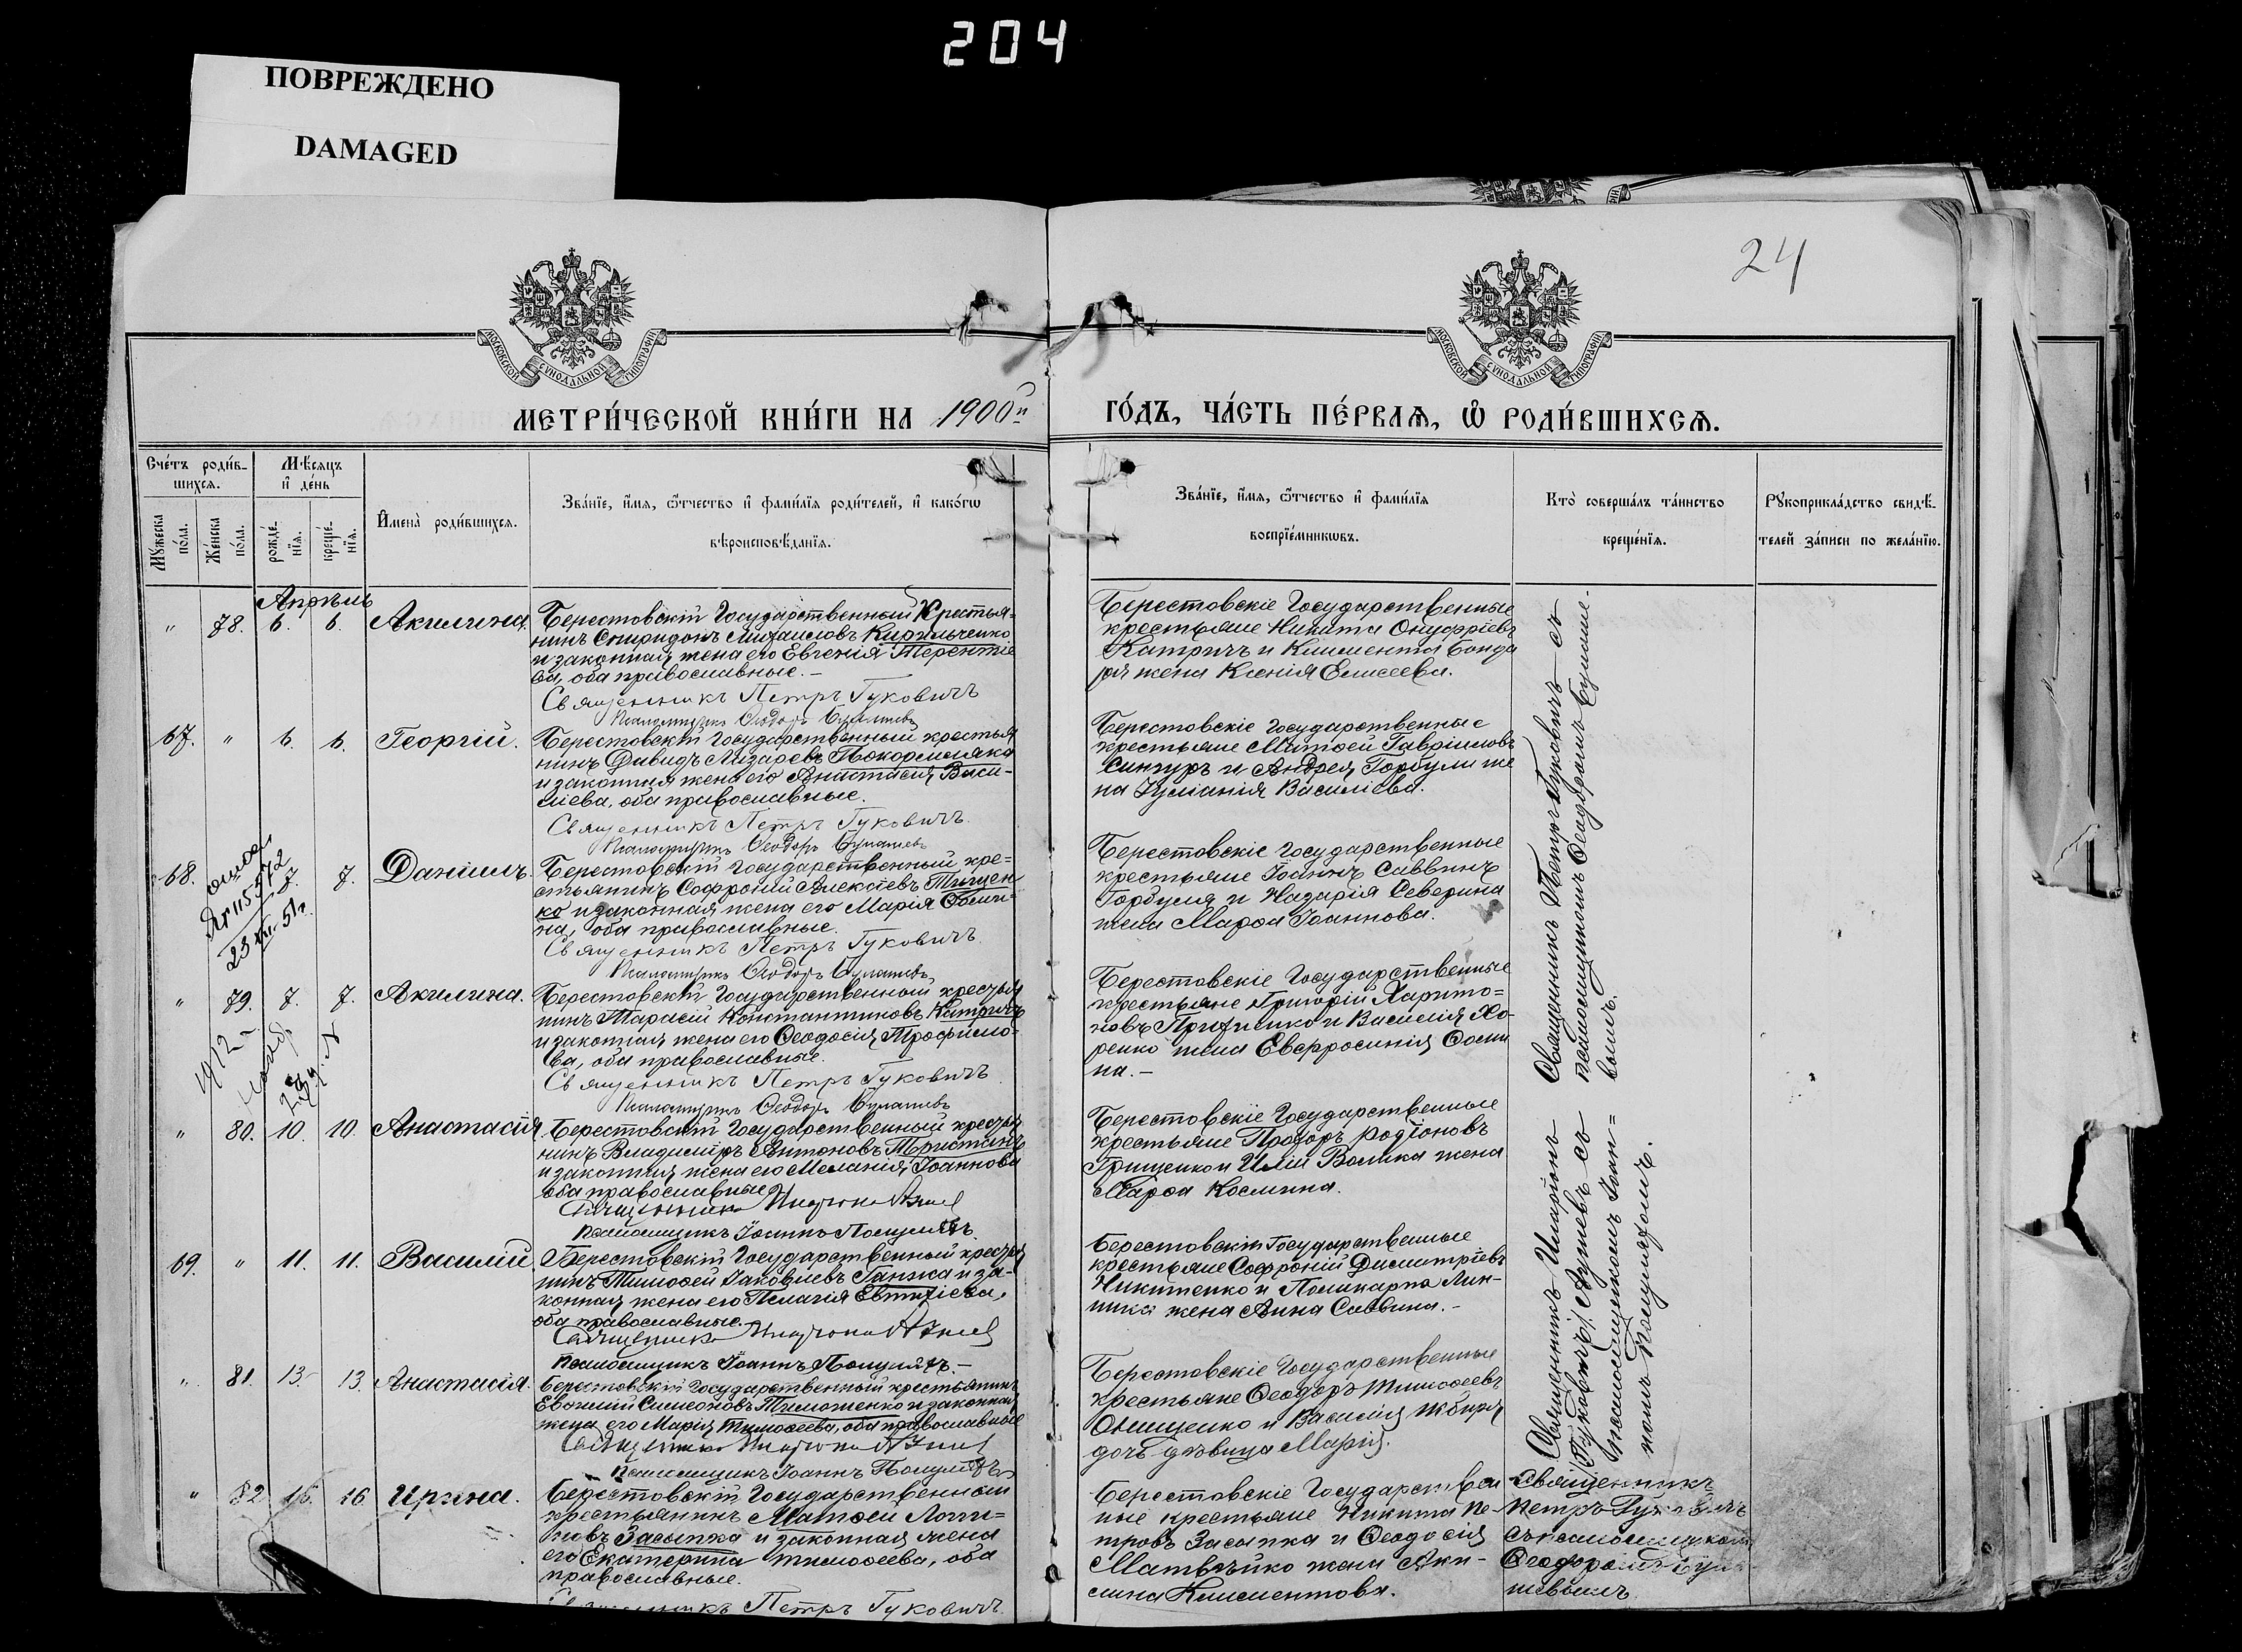 204
ПОВРЕЖДЕНО
DAMAGED
24
МОСКОВСКОЙ СѴНОДАЛЬНОЙ ТИПОГРАФІИ
МОСКОВСКОЙ СѴНОДАЛЬНОЙ ТИПОГРАФІИ
МЕТРИ́ЧЕСКОЙ КНИ́ГИ НА 1900й
ГО́ДЪ, ЧА́СТЬ ПЕ́РВАѦ, Ѡ҆ РОДИ́ВШИХСѦ.
Сче́тъ роди́в-
шихсѧ.
Мꙋжеска по́ла.
Же́нска по́ла.
Мѣсѧцъ
и҆ де́нь
рожде́-
нїѧ.
креще́-
нїѧ.
И҆мена̀ роди́вшихсѧ.
Зва́нїе, и҆́мѧ, ѻ҆́тчество и҆ фами́лїѧ роди́телей, и҆ како́гѡ
вѣроисповѣ́данїѧ.
Зва́нїе, и҆́мѧ, ѻ҆́тчество и҆ фами́лїѧ
воспрїе́мникѡвъ.
Кто̀ соверша́лъ та́инство
креще́нїѧ.
Рꙋкоприкла́дство свидѣ́-
телей за́писи по жела́нїю.
Апрѣль
" 78. 6. 6. Акилина.
Берестовскій Государственный Крестья-
нинъ Спиридонъ Михаиловъ Кирильченко
и законная жена его Евгенія Терентіе
ва, оба православные.-
Священникъ Петръ Гуковичъ
Псаломщикъ Ѳеодоръ
Берестовскіе Государственные
крестьяне Никита Онуфріевъ
Катричъ и Климента Бонда
ря жена Ксенія Елисеева.
67. " 6. 6. Георгій.
Берестовскій Государственный крестья
нинъ Давидъ Лазаревъ
и законная жена его Анастасія Васи-
ліева, оба православные.
Священникъ Петръ Гуковичъ.
Псаломщикъ Ѳеодоръ
Берестовскіе Государственные
крестьяне Матѳей Гавріиловъ
Сингуръ и Андрея Горбули же
на Іуліанія Василіева.
68. 7. 7. Даніилъ.
23 51г.
Берестовскій Государственный кре-
стьянинъ Софроній Алексіевъ Тищен
ко и законная жена его Марія Ѳоми-
на, оба православные.
Священникъ Петръ Гуковичъ.
Псаломщикъ Ѳеодоръ
Берестовскіе Государственные
крестьяне Іоаннъ Саввинъ
Горбуля и Назарія Северина
жена Марѳа Іоаннова.
" 79. 7. 7. Акилина.
1912
Берестовскій Государственный крестья
нинъ Тарасій Константиновъ Катричъ
и законная жена его Ѳеодосія Трофимо-
ва, оба православные.
Священникъ Петръ Гуковичъ.
Псаломщикъ Ѳеодоръ
Берестовскіе Государственные
крестьяне Григорій Харито-
новъ и Василія Хо-
ренко жена Евфросинія Ѳоми
на.-
Священникъ Петръ Гуковичъ съ
псаломщикомъ Ѳеодоромъ
вымъ.
" 80. 10. 10. Анастасія
Берестовскій Государственный крестья
нинъ Владиміръ Антоновъ
и законная жена его Меланія Іоаннова
оба православные
Священникъ
Псаломщикъ Іоаннъ
Берестовскіе Государственные
крестьяне Прохоръ Родіоновъ
Грищенко и Иліи Волика жена
Марѳа Космина.
69. " 11. 11. Василій
Берестовскій Государственный крестья
нинъ Тимоѳей Іаковлевъ Ганжа и за-
конная жена его Пелагія Евтихіева,
оба православные.
Священникъ
Псаломщикъ Іоаннъ
Берестовскіе Государственные
крестьяне Софроній Димитріевъ
Никитенко и Поликарпа Лин-
ника жена Анна Саввина.-
" 81. 13. 13. Анастасія.
Берестовскій Государственный крестьянинъ
Евѳимій Симеоновъ Тимошенко и законная
жена его Марія Тимоѳеева, оба православные
Священникъ
Псаломщикъ Іоаннъ
Берестовскіе Государственные
крестьяне Ѳеодоръ Тимоѳеевъ
Онищенко и Василія
дочь дѣвица Марія.
Священникъ Иларіонъ
съ
псаломщикомъ Іоан-
номъ
" 82 16. 16. Ирина.
Берестовскій Государственный
крестьянинъ Матѳей Логги-
новъ Засыпка и законная жена
его Екатерина Тимоѳеева, оба
православные.
Священникъ Петръ Гуковичъ.
Берестовскіе Государствен
ные крестьяне Никита Пе-
тровъ Засыпка и Ѳеодосія
Матвѣйко жена Аки-
лина Климентова.
Священникъ
Петръ Гуковичъ
съ псаломщикомъ
Ѳеодоромъ